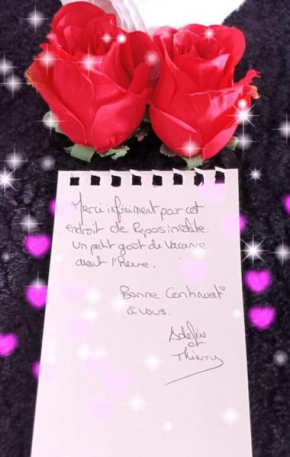 Merci infiniment par cet
endroit de Repos insolite
un petit goût de Vacance
avant l'heure.
Bonne Continuat°
à vous.
et
Thierry